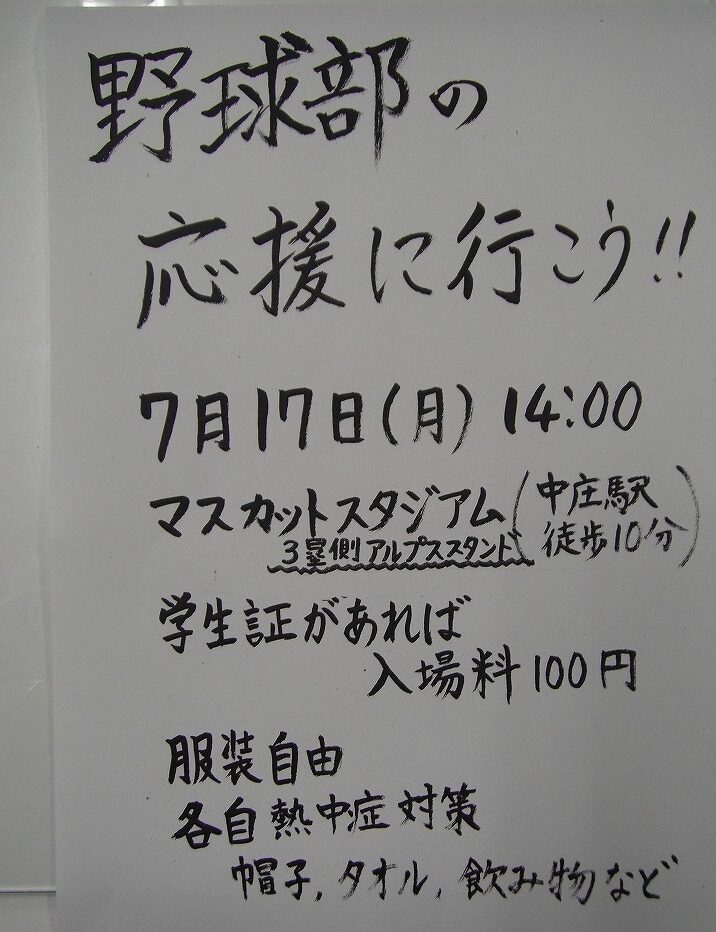 野球部の
応援に行こう!!
7月17日(月) 14:00
マスカットスタジアム(中庄駅徒歩10分)
3塁側アルプススタンド
学生証があれば
入場料100円
服装自由
各自熱中症対策
帽子,タオル,飲み物など